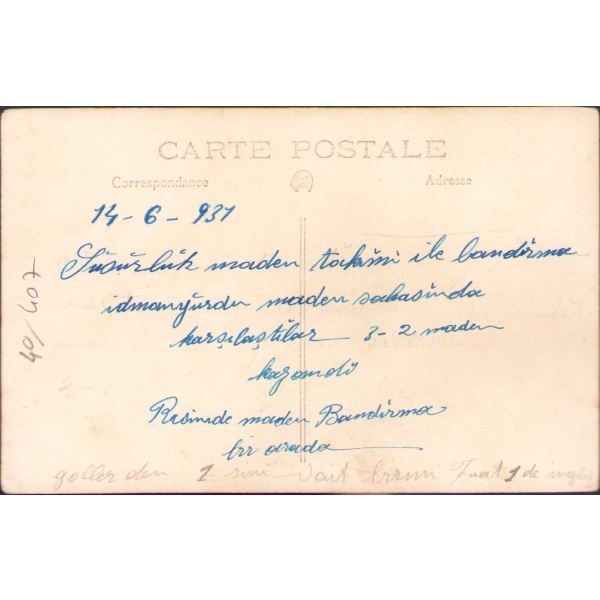 CARTE POSTALE
Correspondance Adresse
14-6-931
Süsürlük maden takımi ile bandırma
idmanyürdu maden sahasında
karşılaştılar 3-2 maden
kazandı
Resimde maden Bandırma
bir arada
40/407
goller den 1 sini Sait 1 de